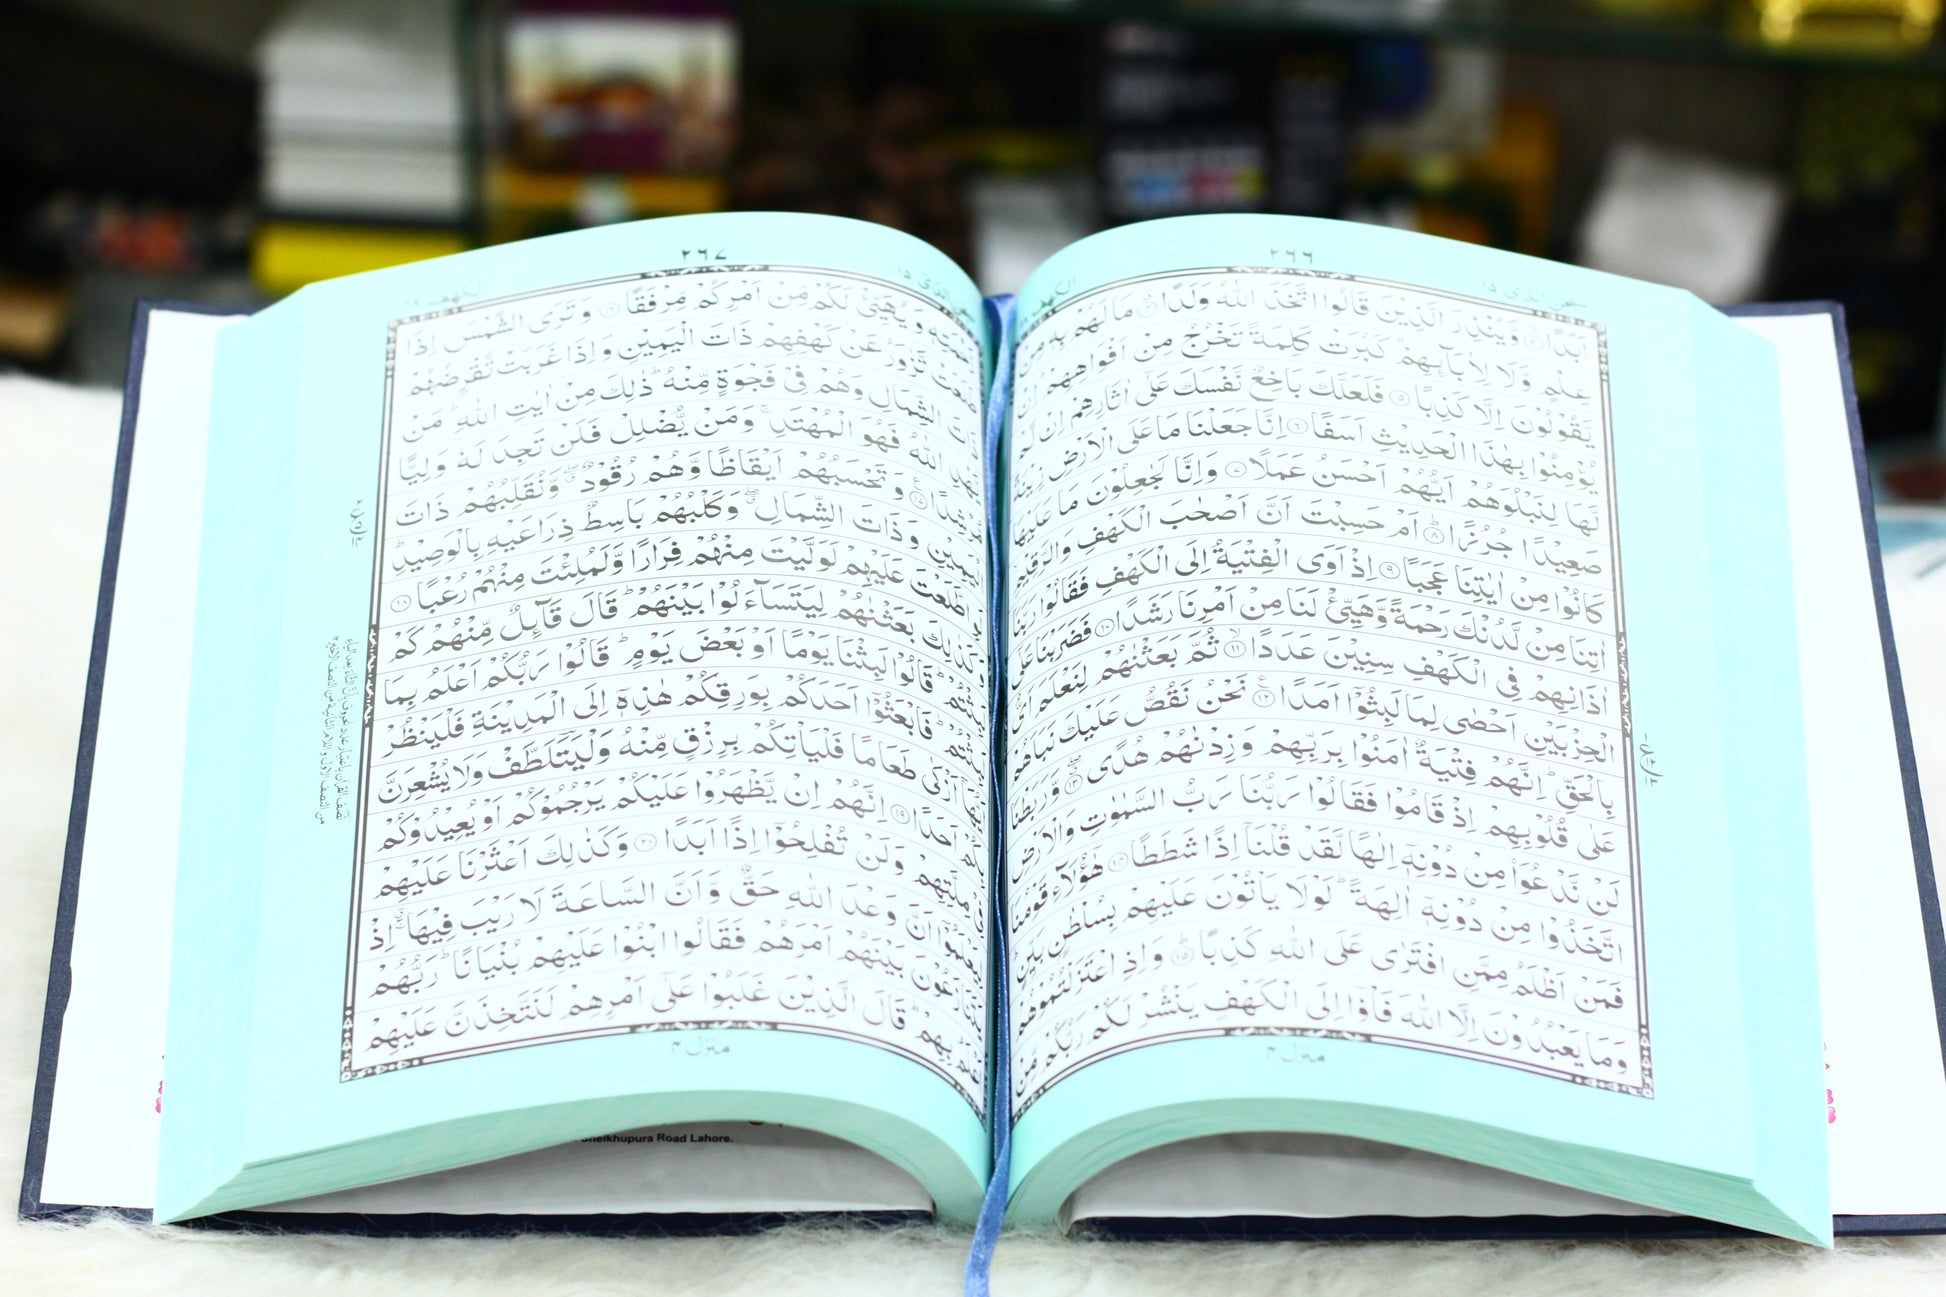 ۲۶۶
سبحن الذی ۱۵
الكهف
اَبَدًا ۝۳ وَّیُنْذِرَ الَّذِیْنَ قَالُوا اتَّخَذَ اللّٰهُ وَلَدًا ۝۴ مَا لَهُمْ بِهٖ مِنْ
عِلْمٍ وَّلَا لِاٰبَآىِٕهِمْ ؕ كَبُرَتْ كَلِمَةً تَخْرُجُ مِنْ اَفْوَاهِهِمْ ؕ اِنْ
یَّقُوْلُوْنَ اِلَّا كَذِبًا ۝۵ فَلَعَلَّكَ بَاخِعٌ نَّفْسَكَ عَلٰۤی اٰثَارِهِمْ اِنْ لَّمْ
یُؤْمِنُوْا بِهٰذَا الْحَدِیْثِ اَسَفًا ۝۶ اِنَّا جَعَلْنَا مَا عَلَی الْاَرْضِ زِیْنَةً
لَّهَا لِنَبْلُوَهُمْ اَیُّهُمْ اَحْسَنُ عَمَلًا ۝۷ وَاِنَّا لَجٰعِلُوْنَ مَا عَلَیْهَا
صَعِیْدًا جُرُزًا ۝۸ اَمْ حَسِبْتَ اَنَّ اَصْحٰبَ الْكَهْفِ وَالرَّقِیْمِ
كَانُوْا مِنْ اٰیٰتِنَا عَجَبًا ۝۹ اِذْ اَوَی الْفِتْیَةُ اِلَی الْكَهْفِ فَقَالُوْا رَبَّنَاۤ
اٰتِنَا مِنْ لَّدُنْكَ رَحْمَةً وَّهَیِّئْ لَنَا مِنْ اَمْرِنَا رَشَدًا ۝۱۰ فَضَرَبْنَا عَلٰۤی
اٰذَانِهِمْ فِی الْكَهْفِ سِنِیْنَ عَدَدًا ۝۱۱ ثُمَّ بَعَثْنٰهُمْ لِنَعْلَمَ اَیُّ
الْحِزْبَیْنِ اَحْصٰی لِمَا لَبِثُوْۤا اَمَدًا ۝۱۲ نَحْنُ نَقُصُّ عَلَیْكَ نَبَاَهُمْ
بِالْحَقِّ ؕ اِنَّهُمْ فِتْیَةٌ اٰمَنُوْا بِرَبِّهِمْ وَزِدْنٰهُمْ هُدًی ۝۱۳ وَّرَبَطْنَا
عَلٰی قُلُوْبِهِمْ اِذْ قَامُوْا فَقَالُوْا رَبُّنَا رَبُّ السَّمٰوٰتِ وَالْاَرْضِ
لَنْ نَّدْعُوَا۠ مِنْ دُوْنِهٖۤ اِلٰهًا لَّقَدْ قُلْنَاۤ اِذًا شَطَطًا ۝۱۴ هٰۤؤُلَآءِ قَوْمُنَا
اتَّخَذُوْا مِنْ دُوْنِهٖۤ اٰلِهَةً ؕ لَوْلَا یَاْتُوْنَ عَلَیْهِمْ بِسُلْطٰنٍۭ بَیِّنٍ ؕ
فَمَنْ اَظْلَمُ مِمَّنِ افْتَرٰی عَلَی اللّٰهِ كَذِبًا ۝۱۵ وَاِذِ اعْتَزَلْتُمُوْهُمْ
وَمَا یَعْبُدُوْنَ اِلَّا اللّٰهَ فَاْوٗۤا اِلَی الْكَهْفِ یَنْشُرْ لَكُمْ رَبُّكُمْ مِّنْ
منزل ۴
۲۶۷
الذی ۱۵
الكهف ۱۸
وَیُهَیِّئْ لَكُمْ مِّنْ اَمْرِكُمْ مِّرْفَقًا ۝۱۶ وَتَرَی الشَّمْسَ اِذَا
تَّزٰوَرُ عَنْ كَهْفِهِمْ ذَاتَ الْیَمِیْنِ وَاِذَا غَرَبَتْ تَّقْرِضُهُمْ
ذَاتَ الشِّمَالِ وَهُمْ فِیْ فَجْوَةٍ مِّنْهُ ؕ ذٰلِكَ مِنْ اٰیٰتِ اللّٰهِ ؕ مَنْ
یَّهْدِ اللّٰهُ فَهُوَ الْمُهْتَدِ ۚ وَمَنْ یُّضْلِلْ فَلَنْ تَجِدَ لَهٗ وَلِیًّا
مُّرْشِدًا ۝۱۷ وَتَحْسَبُهُمْ اَیْقَاظًا وَّهُمْ رُقُوْدٌ ۖ وَّنُقَلِّبُهُمْ ذَاتَ
الْیَمِیْنِ وَذَاتَ الشِّمَالِ ۖ وَكَلْبُهُمْ بَاسِطٌ ذِرَاعَیْهِ بِالْوَصِیْدِ ؕ
اطَّلَعْتَ عَلَیْهِمْ لَوَلَّیْتَ مِنْهُمْ فِرَارًا وَّلَمُلِئْتَ مِنْهُمْ رُعْبًا ۝۱۸
وَكَذٰلِكَ بَعَثْنٰهُمْ لِیَتَسَآءَلُوْا بَیْنَهُمْ ؕ قَالَ قَآىِٕلٌ مِّنْهُمْ كَمْ
لَبِثْتُمْ ؕ قَالُوْا لَبِثْنَا یَوْمًا اَوْ بَعْضَ یَوْمٍ ؕ قَالُوْا رَبُّكُمْ اَعْلَمُ بِمَا
لَبِثْتُمْ ؕ فَابْعَثُوْۤا اَحَدَكُمْ بِوَرِقِكُمْ هٰذِهٖۤ اِلَی الْمَدِیْنَةِ فَلْیَنْظُرْ
اَیُّهَاۤ اَزْكٰی طَعَامًا فَلْیَاْتِكُمْ بِرِزْقٍ مِّنْهُ وَلْیَتَلَطَّفْ وَلَا یُشْعِرَنَّ
بِكُمْ اَحَدًا ۝۱۹ اِنَّهُمْ اِنْ یَّظْهَرُوْا عَلَیْكُمْ یَرْجُمُوْكُمْ اَوْ یُعِیْدُوْكُمْ
فِیْ مِلَّتِهِمْ وَلَنْ تُفْلِحُوْۤا اِذًا اَبَدًا ۝۲۰ وَكَذٰلِكَ اَعْثَرْنَا عَلَیْهِمْ
لِیَعْلَمُوْۤا اَنَّ وَعْدَ اللّٰهِ حَقٌّ وَّاَنَّ السَّاعَةَ لَا رَیْبَ فِیْهَا ۚ اِذْ
یَتَنَازَعُوْنَ بَیْنَهُمْ اَمْرَهُمْ فَقَالُوا ابْنُوْا عَلَیْهِمْ بُنْیَانًا ؕ رَبُّهُمْ
اَعْلَمُ بِهِمْ ؕ قَالَ الَّذِیْنَ غَلَبُوْا عَلٰۤی اَمْرِهِمْ لَنَتَّخِذَنَّ عَلَیْهِمْ
منزل ۴
Sheikhupura Road Lahore.